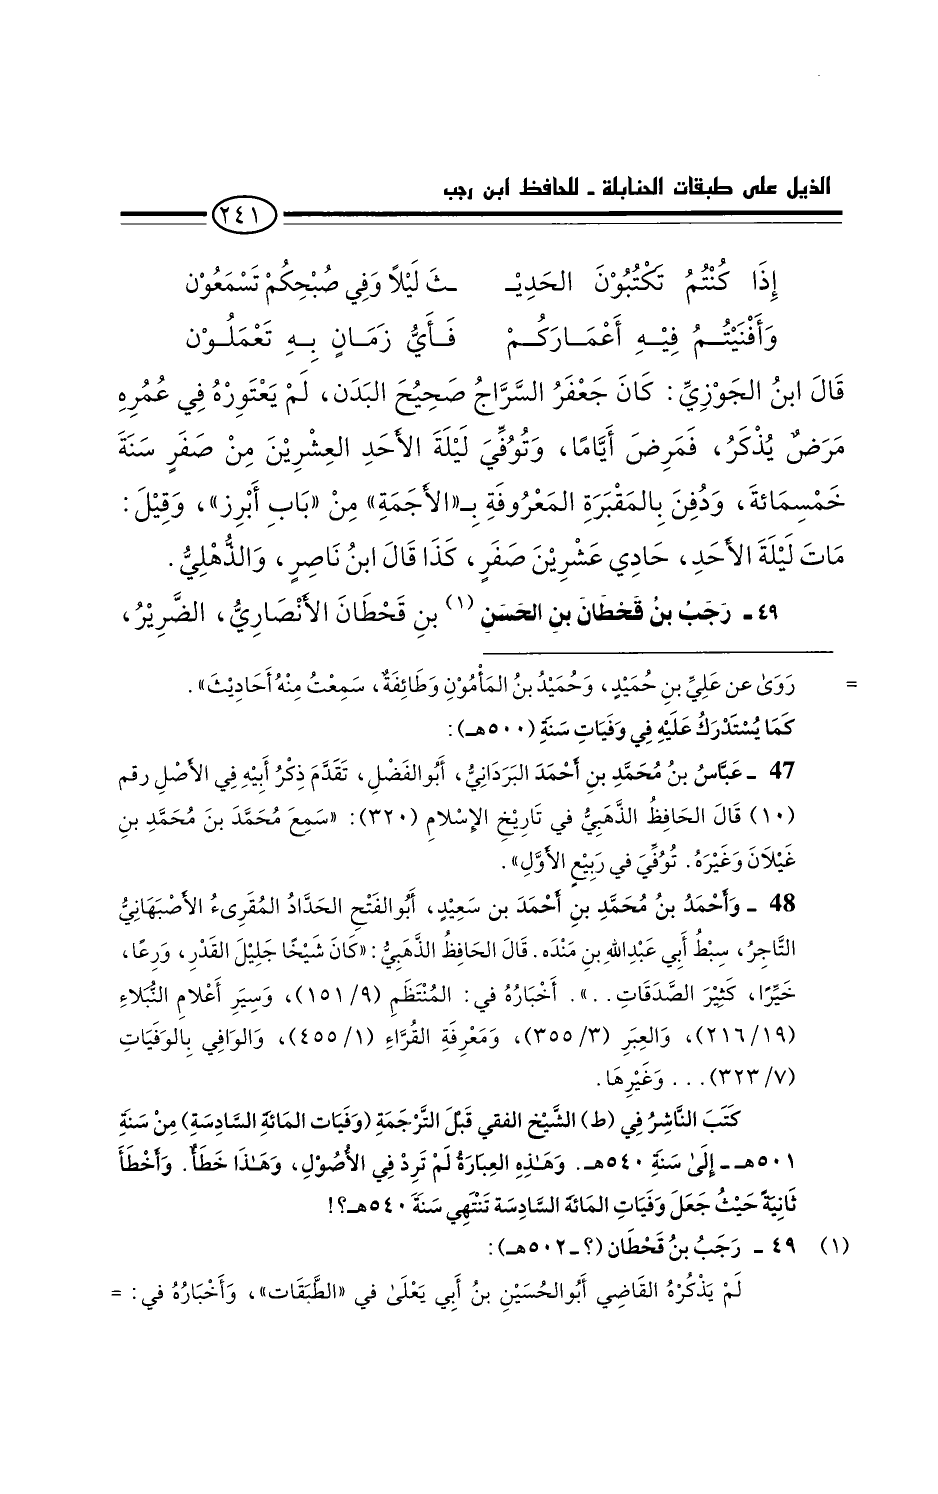 الذيل على طبقات الحنابلة ـ للحافظ ابن رجب
٢٤١
إِذَا كُنْتُمُ تَكْتُبُوْنَ الحَدِيْـ ـثَ لَيْلاً وَفِي صُبْحِكُمْ تَسْمَعُوْن
وَأَفْنَيْتُـمُ فِيْـهِ أَعْمَـارَكُـمْ فَـأَيُّ زَمَـانٍ بِـهِ تَعْمَلُـوْن
قَالَ ابنُ الجَوْزِيِّ : كَانَ جَعْفَرُ السَّرَّاجُ صَحِيْحَ البَدَنِ، لَمْ يَعْتَوِرْهُ فِي عُمُرِهِ
مَرَضٌ يُذْكَرُ، فَمَرِضَ أَيَّامًا، وَتُوُفِّيَ لَيْلَةَ الأَحَدِ العِشْرِيْنَ مِنْ صَفَرٍ سَنَةَ
خَمْسِمَائَةَ، وَدُفِنَ بِالمَقْبَرَةِ المَعْرُوفَةِ بِـ«الأَجَمَةِ» مِنْ «بَابِ أَبْرِز»، وَقِيْلَ :
مَاتَ لَيْلَةَ الأَحَدِ، حَادِي عَشْرِيْنَ صَفَرٍ، كَذَا قَالَ ابنُ نَاصِرٍ، وَالذُّهْلِيُّ.
٤٩ـ رَجَبُ بنُ قَحْطَانَ بنِ الحَسَنِ (١) بنِ قَحْطَانَ الأَنْصَارِيُّ، الضَّرِيْرُ،
= رَوَىٰ عن عَلِيِّ بنِ حُمَيْدٍ، وَحُمَيْدُ بنُ المَأْمُوْنِ وَطَائِفَةٌ، سَمِعْتُ مِنْهُ أَحَادِيْثَ».
كَمَا يُسْتَدْرَكُ عَلَيْهِ فِي وَفَيَاتِ سَنَةِ (٥٠٠هـ):
47 ـ عَبَّاسُ بنُ مُحَمَّدِ بنِ أَحْمَدَ البَرَدَانِيُّ، أَبُو الفَضْلِ، تَقَدَّمَ ذِكْرُ أَبِيْهِ فِي الأَصْلِ رقم
(١٠) قَالَ الحَافِظُ الذَّهَبِيُّ في تَارِيْخِ الإِسْلامِ (٣٢٠): «سَمِعَ مُحَمَّدَ بنَ مُحَمَّدِ بنِ
غَيْلَانَ وَغَيْرَهُ. تُوُفِّيَ في رَبِيْعٍ الأَوَّلِ».
48 ـ وَأَحْمَدُ بنُ مُحَمَّدِ بنِ أَحْمَدَ بن سَعِيْدٍ، أَبُو الفَتْحِ الحَدَّادُ المُقرِىءُ الأَصْبَهَانِيُّ
التَّاجِرُ، سِبْطُ أَبِي عَبْدِاللهِ بنِ مَنْدَه. قَالَ الحَافِظُ الذَّهَبِيُّ: «كَانَ شَيْخًا جَلِيْلَ القَدْرِ، وَرِعًا،
خَيِّرًا، كَثِيْرَ الصَّدَقَاتِ...». أَخْبَارُهُ في: المُنْتَظَمِ (٩/ ١٥١)، وَسِيَرِ أَعْلَامِ النُّبَلَاءِ
(١٩/ ٢١٦)، وَالعِبَرِ (٣/ ٣٥٥)، وَمَعْرِفَةِ القُرَّاءِ (١/ ٤٥٥)، وَالوَافِي بِالوَفَيَاتِ
(٧/ ٣٢٣)... وَغَيْرِهَا.
كَتَبَ النَّاشِرُ فِي (ط) الشَّيْخِ الفقي قَبْلَ التَّرْجَمَةِ (وَفَيَات المَائَةِ السَّادِسَةِ) مِنْ سَنَةِ
٥٠١هـ ـ إِلَىٰ سَنَةِ ٥٤٠هـ. وَهَـٰذِهِ العِبَارَةُ لَمْ تَرِدْ فِي الأُصُوْلِ، وَهَـٰذَا خَطَأٌ. وَأَخْطَأَ
ثَانِيَةً حَيْثُ جَعَلَ وَفَيَاتِ المَائَة السَّادِسَة تَنْتَهِي سَنَةَ ٥٤٠هـ؟!
(١) ٤٩ ـ رَجَبُ بنُ قَحْطَان (؟ ـ ٥٠٢هـ):
لَمْ يَذْكُرْهُ القَاضِي أَبُو الحُسَيْنِ بنُ أَبِي يَعْلَىٰ في «الطَّبَقَاتِ»، وَأَخْبَارُهُ في: =